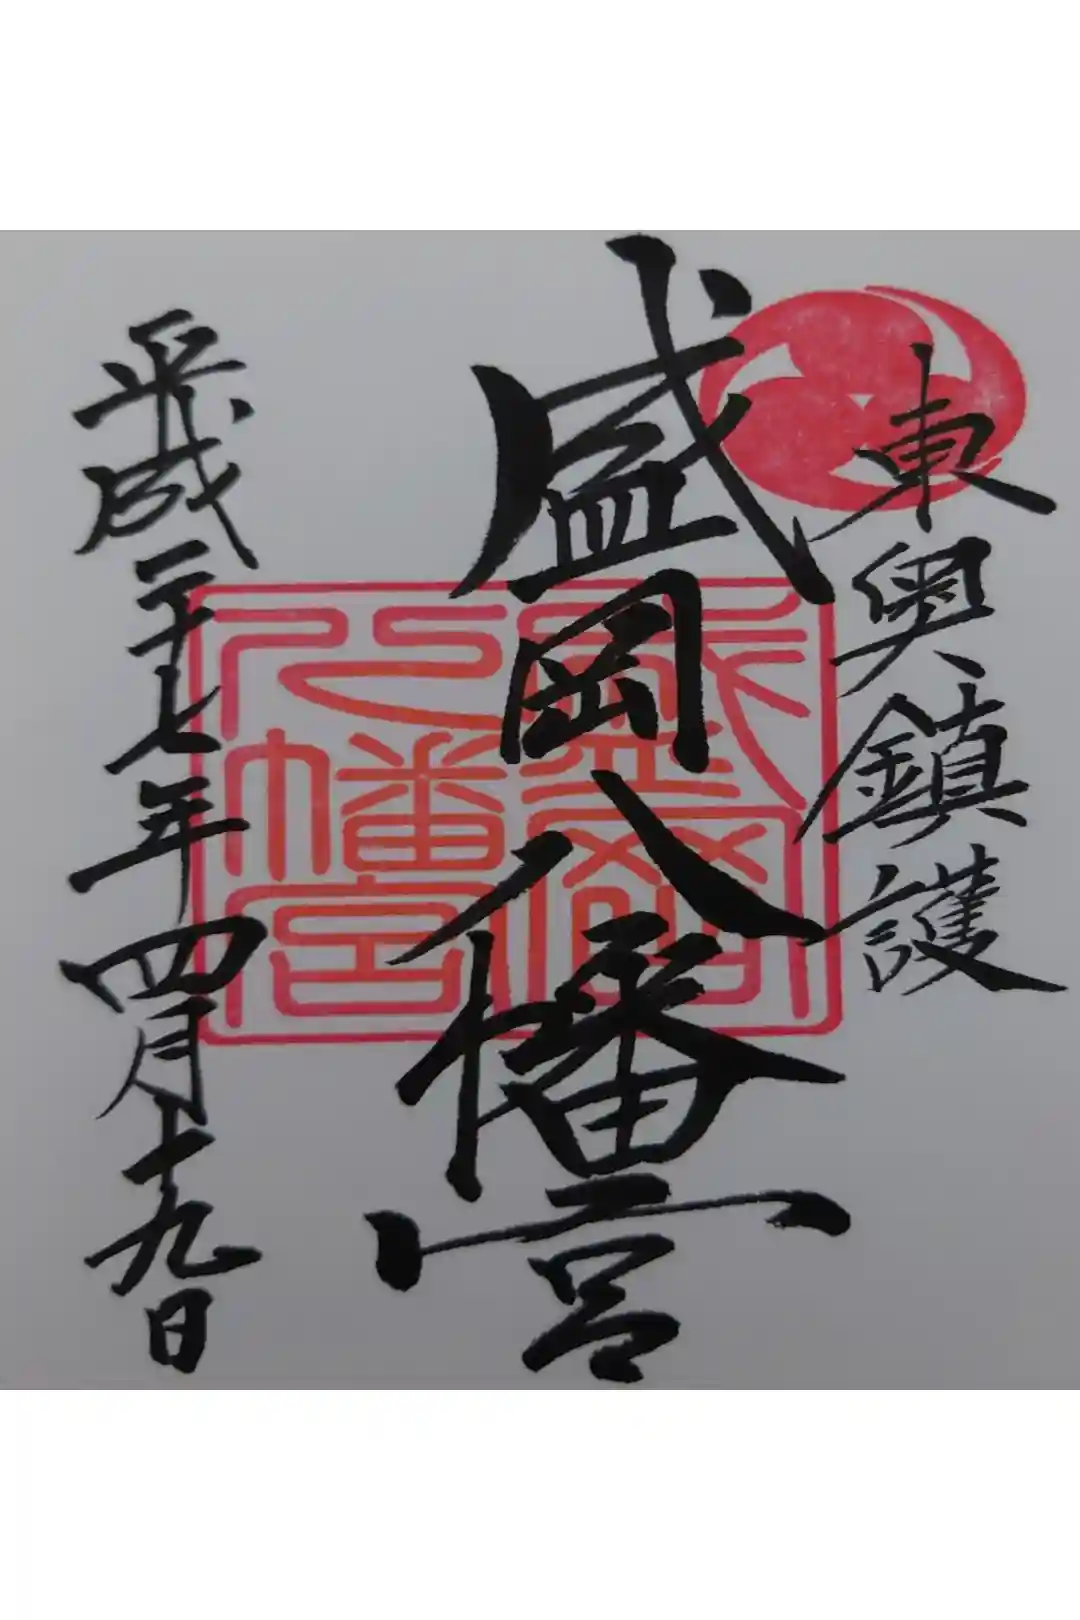 東奥鎮護
盛岡八幡宮
平成二十七年四月十九日
盛岡
八幡宮